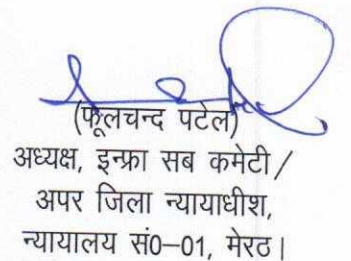 (फूलचन्द पटेल)
अध्यक्ष, इन्फ्रा सब कमेटी/
अपर जिला न्यायाधीश,
न्यायालय सं0–01, मेरठ।